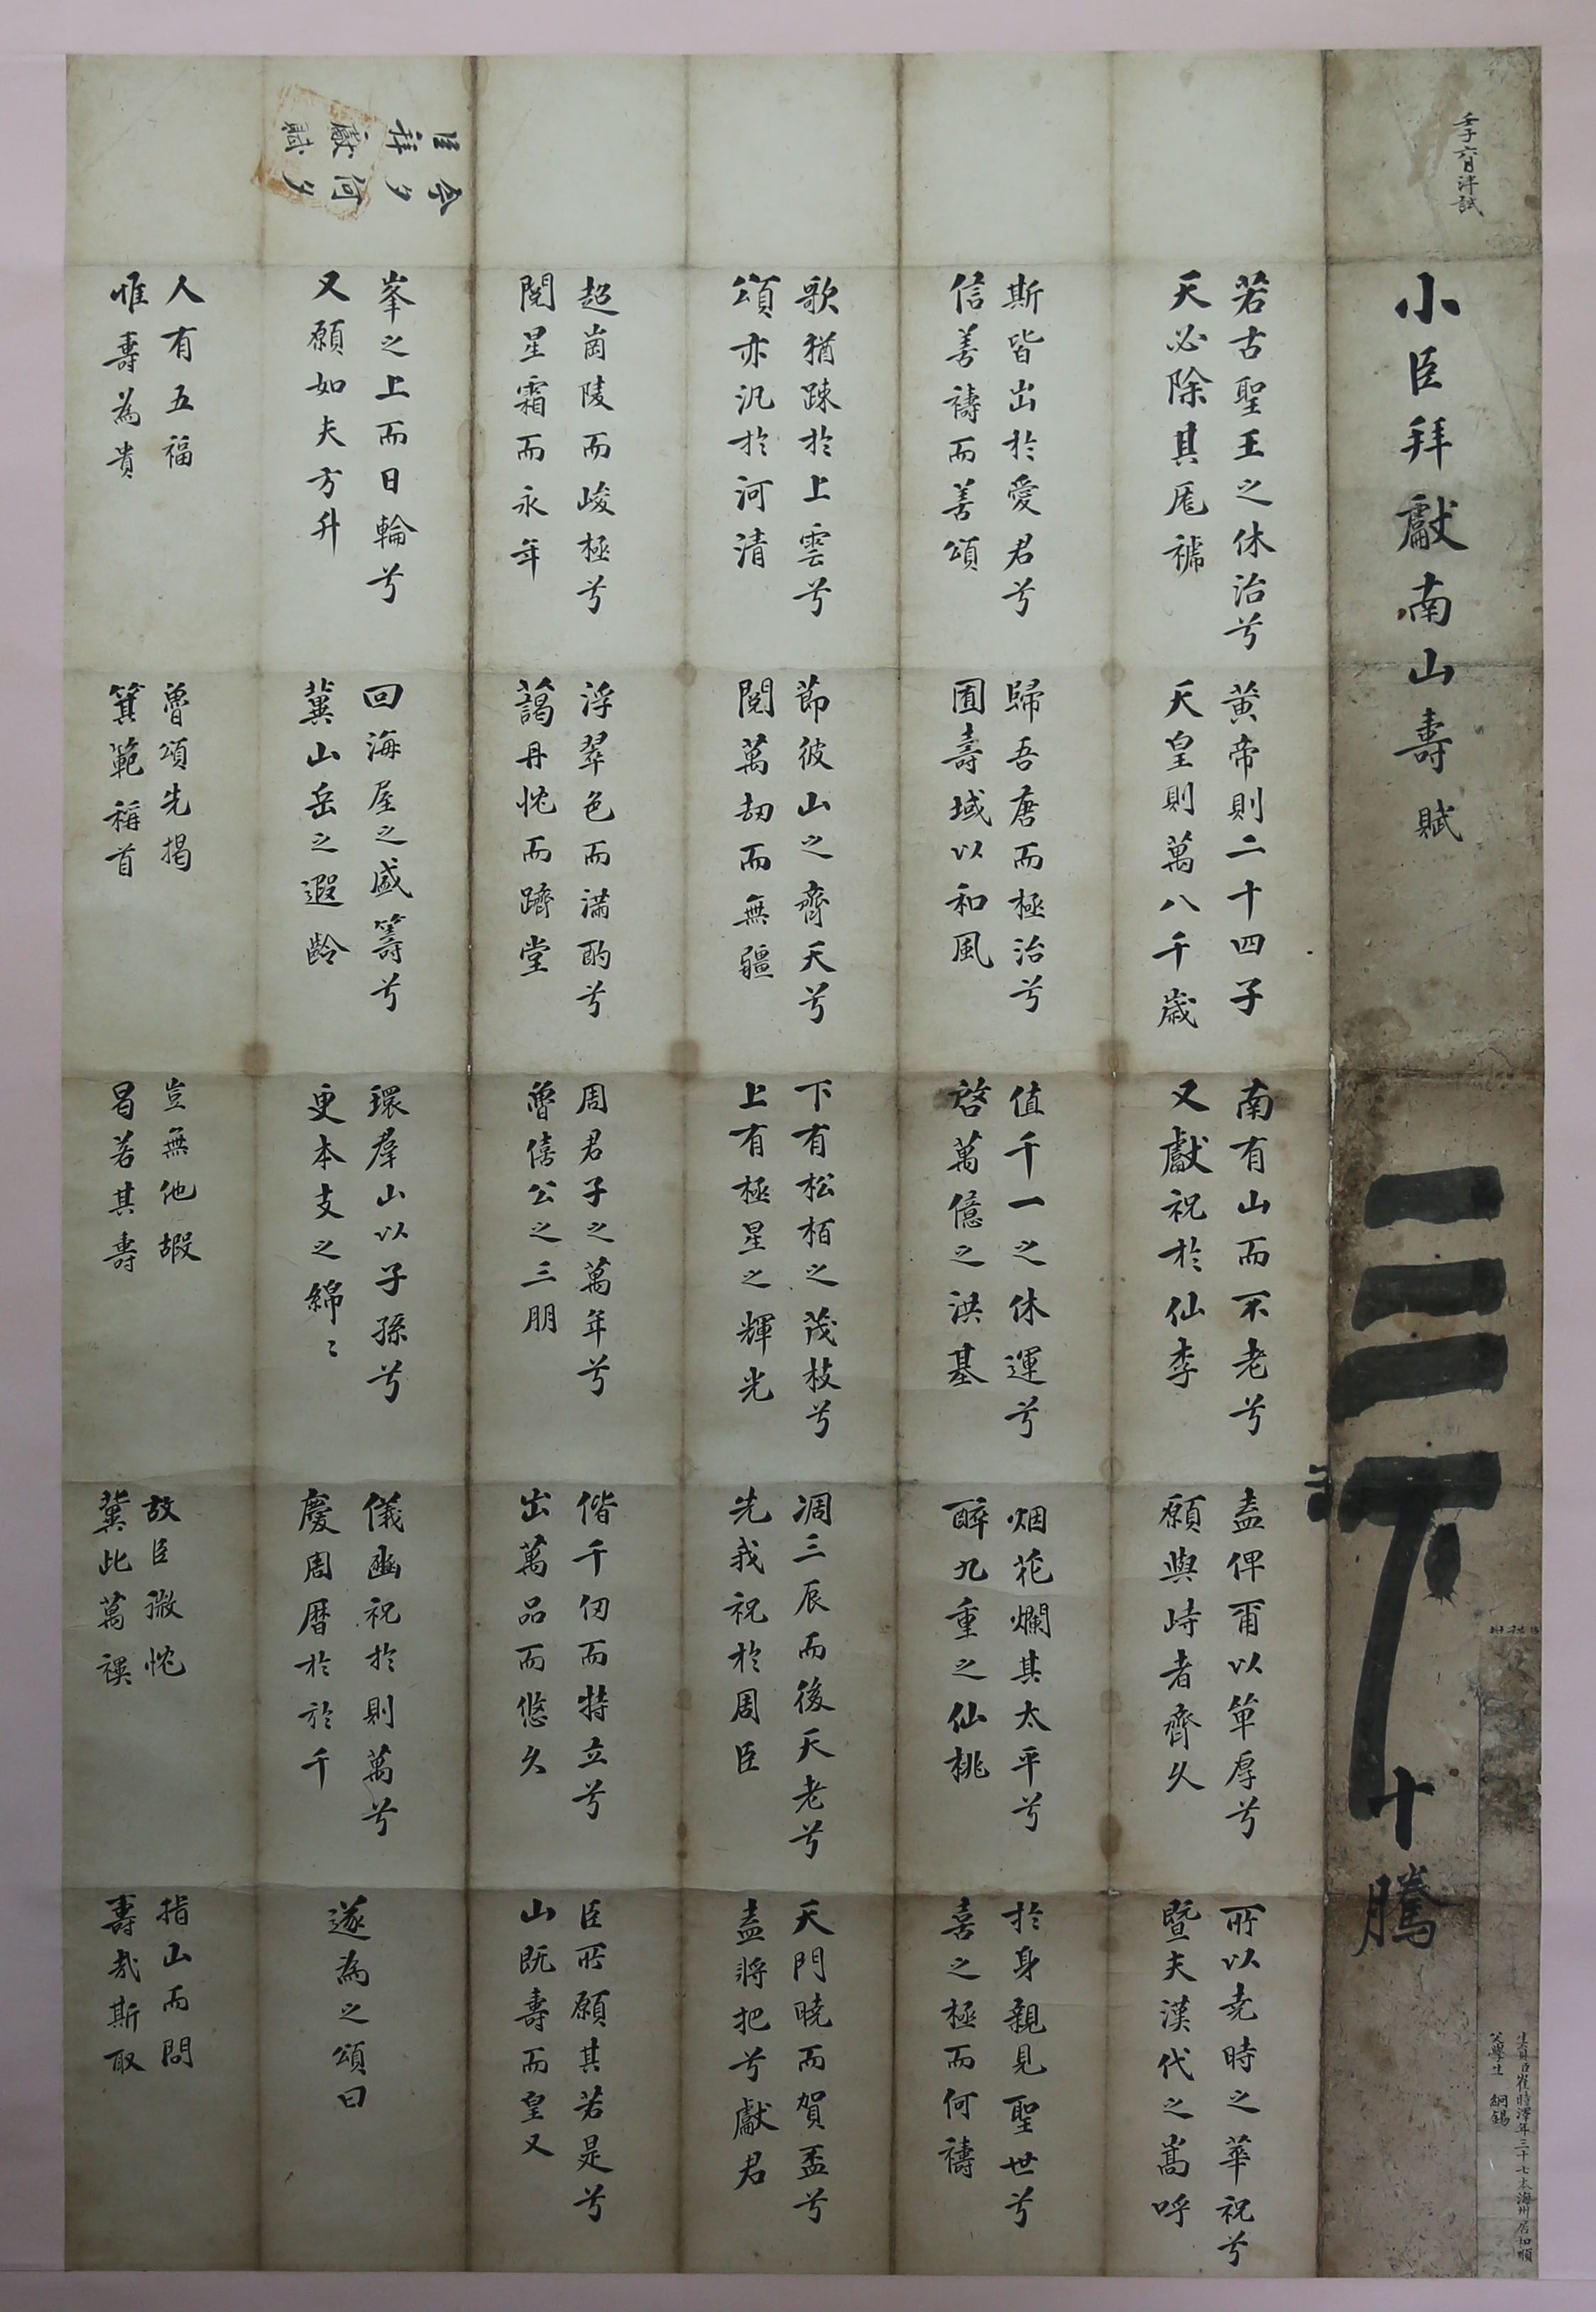 壬子六月泮試
小臣拜獻南山壽賦
三下
十騰
生員臣崔時澤年三十七本海州居和順
父學生 絅錫
若古聖王之休治兮
天必除其厖褫
黃帝則二十四子
天皇則萬八千歲
南有山而不老兮
又獻祝於仙李
盍俾爾以單厚兮
願與峙者齊久
所以堯時之華祝兮
暨夫漢代之嵩呼
斯皆出於愛君兮
信善禱而善頌
歸吾唐而極治兮
囿壽域以和風
值千一之休運兮
啓萬億之洪基
烟花爛其太平兮
醉九重之仙桃
於身親見聖世兮
喜之極而何禱
歌猶踈於上雲兮
頌亦汎於河清
節彼山之齊天兮
閱萬刧而無疆
下有松栢之茂枝兮
上有極星之輝光
凋三辰而後天老兮
先我祝於周臣
天門曉而賀盃兮
盍將把兮獻君
超崗陵而峻極兮
閱星霜而永年
浮翠色而滿酌兮
藹丹忱而躋堂
周君子之萬年兮
魯僖公之三朋
偕千仞而特立兮
出萬品而悠久
臣所願其若是兮
山既壽而皇又
峯之上而日輪兮
又願如夫方升
回海屋之盛籌兮
冀山岳之遐齡
環羣山以子孫兮
更本支之綿〻
儀豳祝於則萬兮
慶周曆於於千
遂為之頌曰
人有五福
惟壽為貴
魯頌先揭
箕範稱首
豈無他嘏
曷若其壽
故臣微忱
冀此萬禩
指山而問
壽哉斯取
臣今夕
拜獻何
賦夕